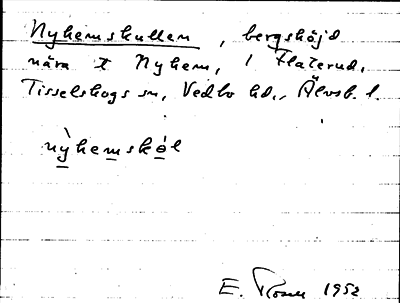 Nyhemskullen, bergshöjd
nära t Nyhem, i Flaterud,
Tisselskogs sn, Vedbo hd., Älvsb. l.
nỳhemskól
E. 1952